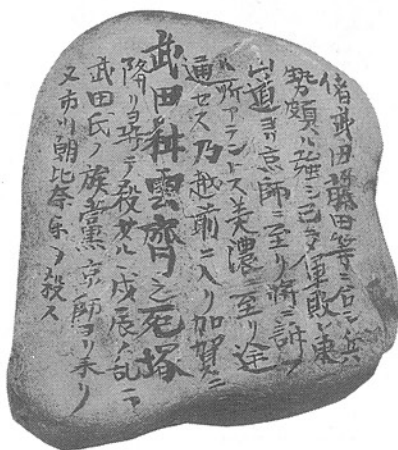 偖武田藤田等ニ シ兵
勢頗ル強シ已 軍敗レ東
山道ヨリ京師ニ至リ将ニ訴フ
ル所アラントス美濃ニ至リ途
通セス乃越前ニ入リ加賀ニ
武田耕雲齊之死塚
降リ尋テ殺サル戊辰ノ乱ニ
武田氏ノ族黨京師ヨリ来リ
又市川朝比奈等ヲ殺ス